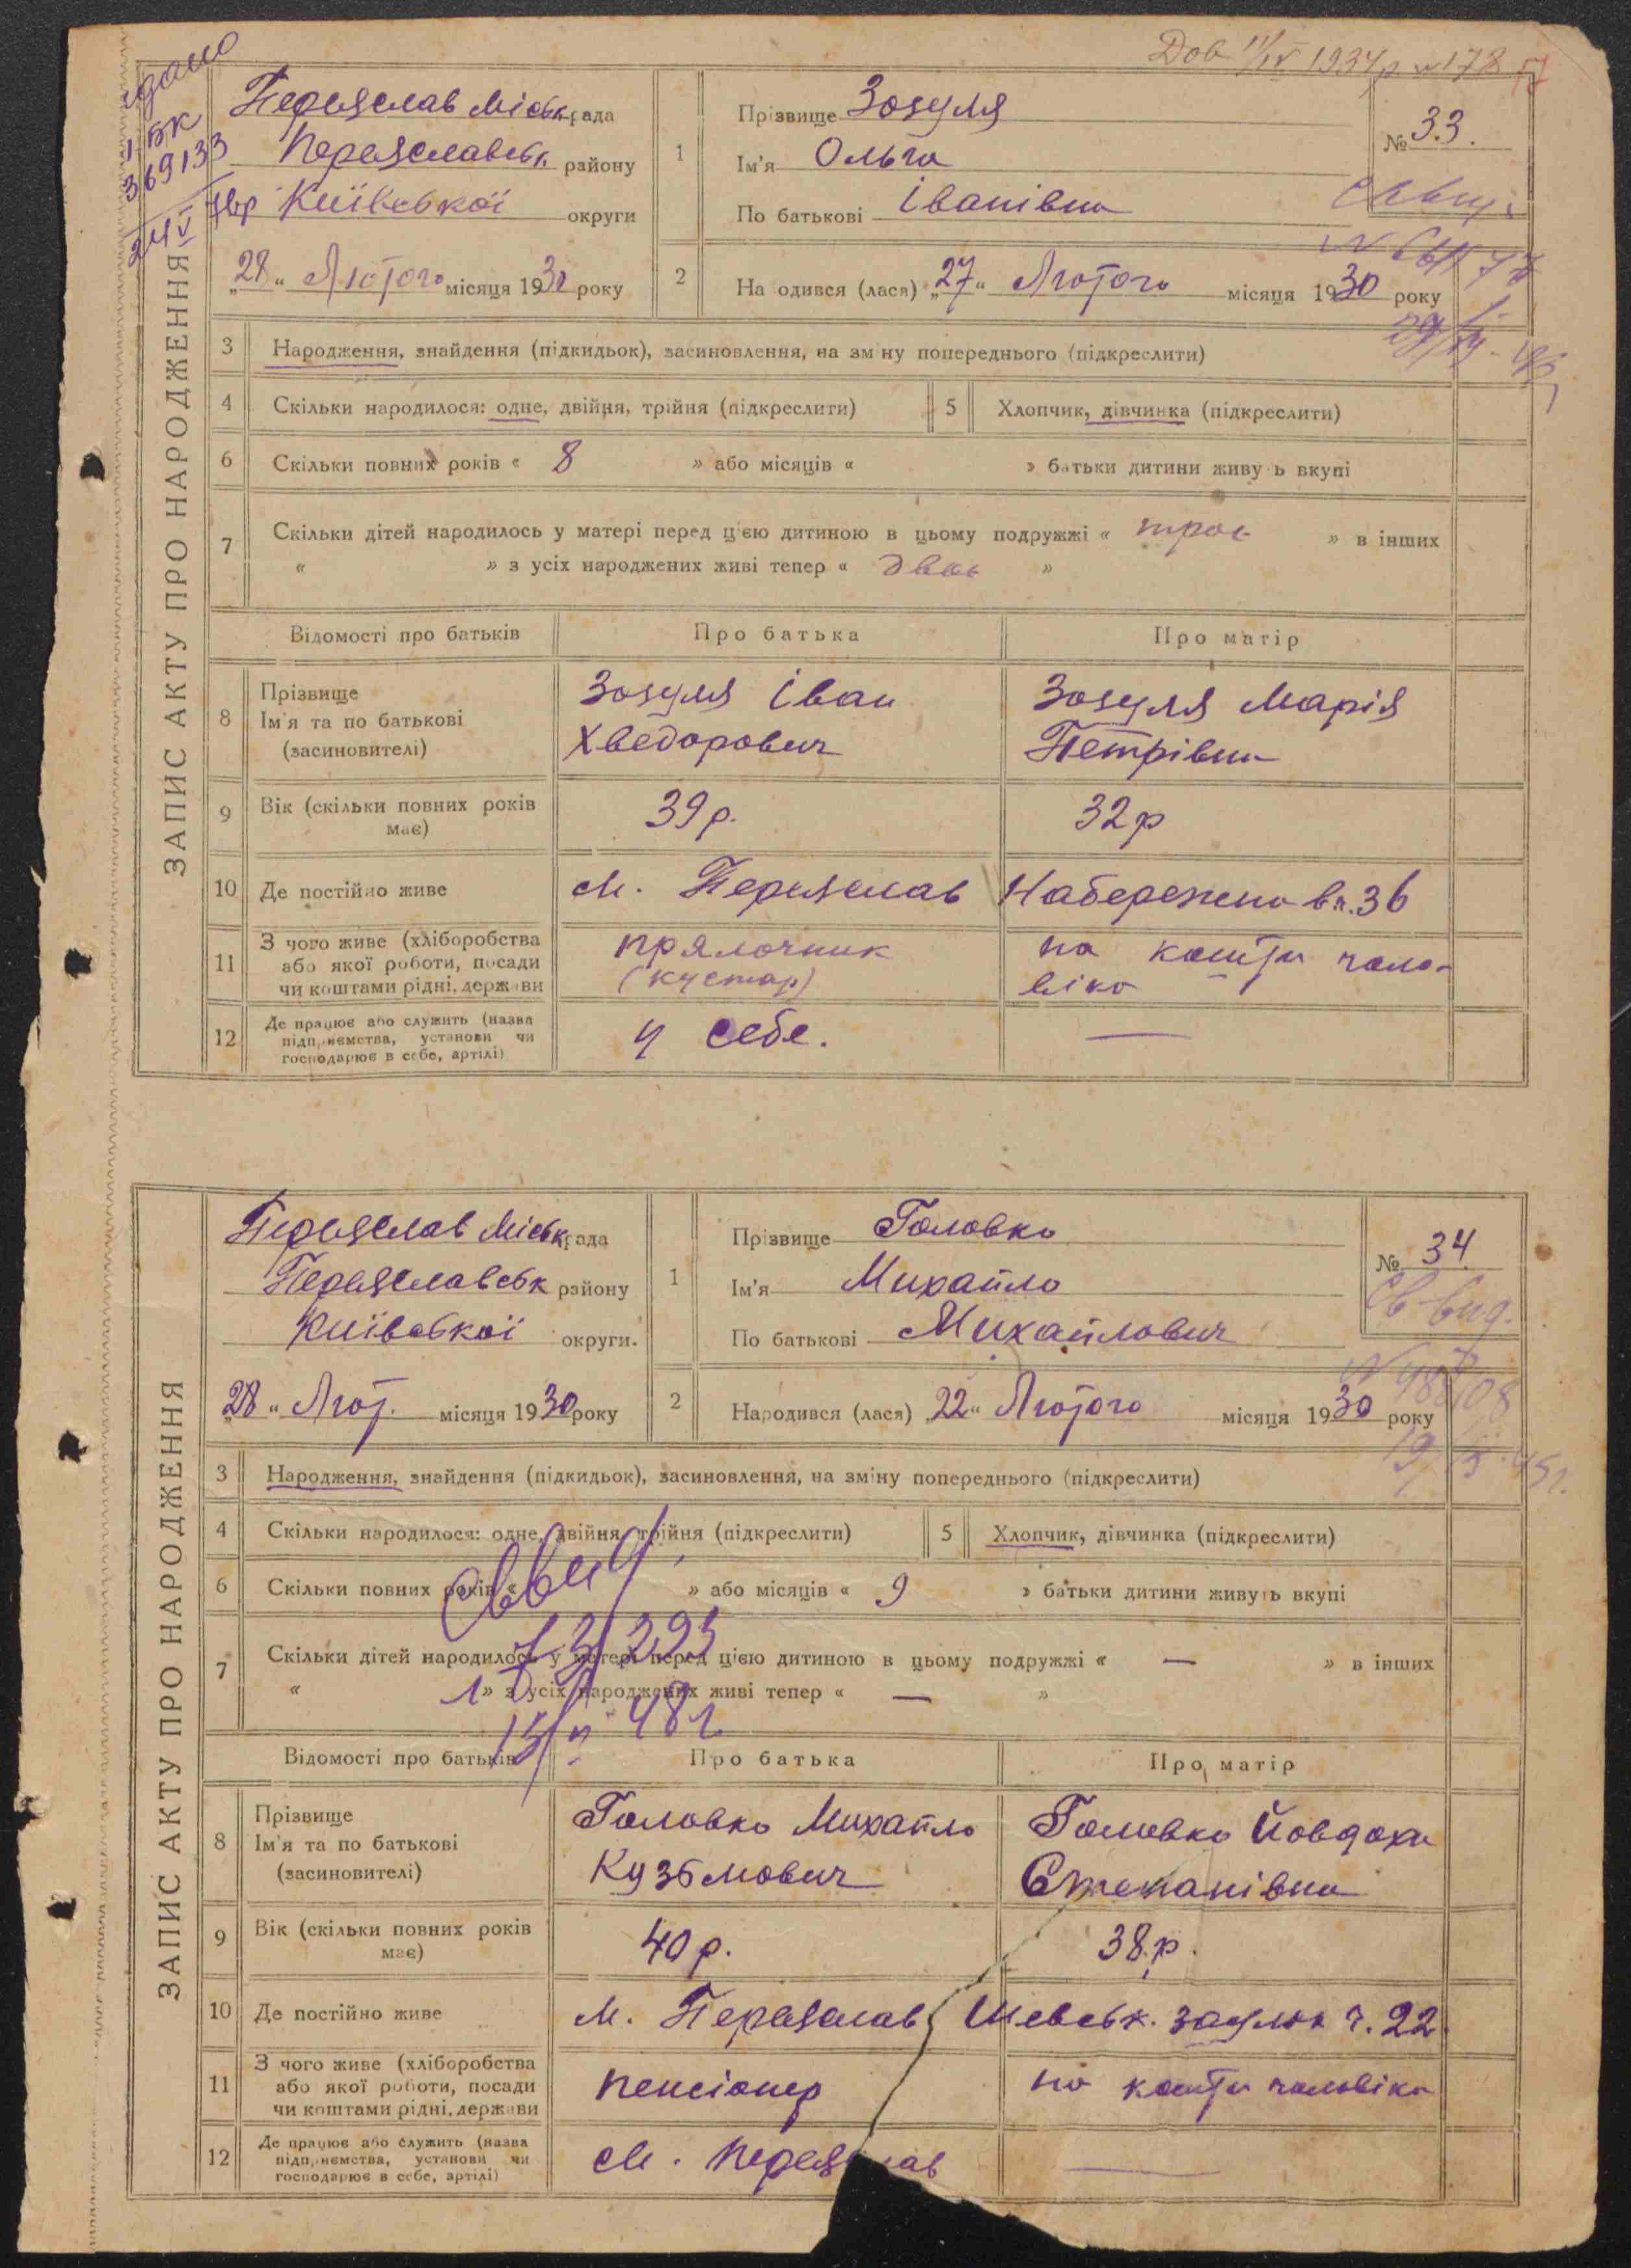 Дов 11/IV 1934р № 178
дано
І БК
369133
24 V
Переяслав Міськрада
Переяславськ району
Київської округи
„28“ Лютого місяця 1930 року
1
Прізвище Зозуля
Ім'я Ольга
По батькові Іванівна
№ 33.
2
Народився (лася) „27“ Лютого місяця 1930 року
ЗАПИС АКТУ ПРО НАРОДЖЕННЯ
3 Народження, знайдення (підкидьок), засиновлення, на зміну попереднього (підкреслити)
4 Скільки народилося: одне, двійня, трійня (підкреслити) 5 Хлопчик, дівчинка (підкреслити)
6 Скільки повних років « 8 » або місяців « » батьки дитини живуть вкупі
7 Скільки дітей народилось у матері перед цією дитиною в цьому подружжі « троє » в інших
« » з усіх народжених живі тепер « двоє »
Відомості про батьків Про батька Про матір
8 Прізвище
Ім'я та по батькові
(засиновителі)
Зозуля Іван
Хведорович
Зозуля Марія
Петрівна
9 Вік (скільки повних років
має)
39 р.
32 р
10 Де постійно живе м. Переяслав Набережна вл. 36
11 З чого живе (хліборобства
або якої роботи, посади
чи коштами рідні, держави
прялочник
(кустар)
на кошти чоло-
віка
12 Де працює або служить (назва
підприємства, установи чи
господарює в себе, артілі)
у себе.
—
Переяслав Міськрада
Переяславськ району
Київської округи.
„28“ Лют. місяця 1930 року
1
Прізвище Головко
Ім'я Михайло
По батькові Михайлович
№ 34.
Св. вид.
2
Народився (лася) „22“ Лютого місяця 1930 року
ЗАПИС АКТУ ПРО НАРОДЖЕННЯ
3 Народження, знайдення (підкидьок), засиновлення, на зміну попереднього (підкреслити)
4 Скільки народилося: одне, двійня, трійня (підкреслити) 5 Хлопчик, дівчинка (підкреслити)
6 Скільки повних років « » або місяців « 9 » батьки дитини живуть вкупі
7 Скільки дітей народилось у матері перед цією дитиною в цьому подружжі « — » в інших
« 1 » з усіх народжених живі тепер « — »
Відомості про батьків Про батька Про матір
8 Прізвище
Ім'я та по батькові
(засиновителі)
Головко Михайло
Кузьмович
Головко Йовдоха
Степанівна
9 Вік (скільки повних років
має)
40 р.
38 р.
10 Де постійно живе м. Переяслав Шевськ. заулок ч. 22
11 З чого живе (хліборобства
або якої роботи, посади
чи коштами рідні, держави
пенсіонер
на кошти чоловіка
12 Де працює або служить (назва
підприємства, установи чи
господарює в себе, артілі)
м. Переяслав
—